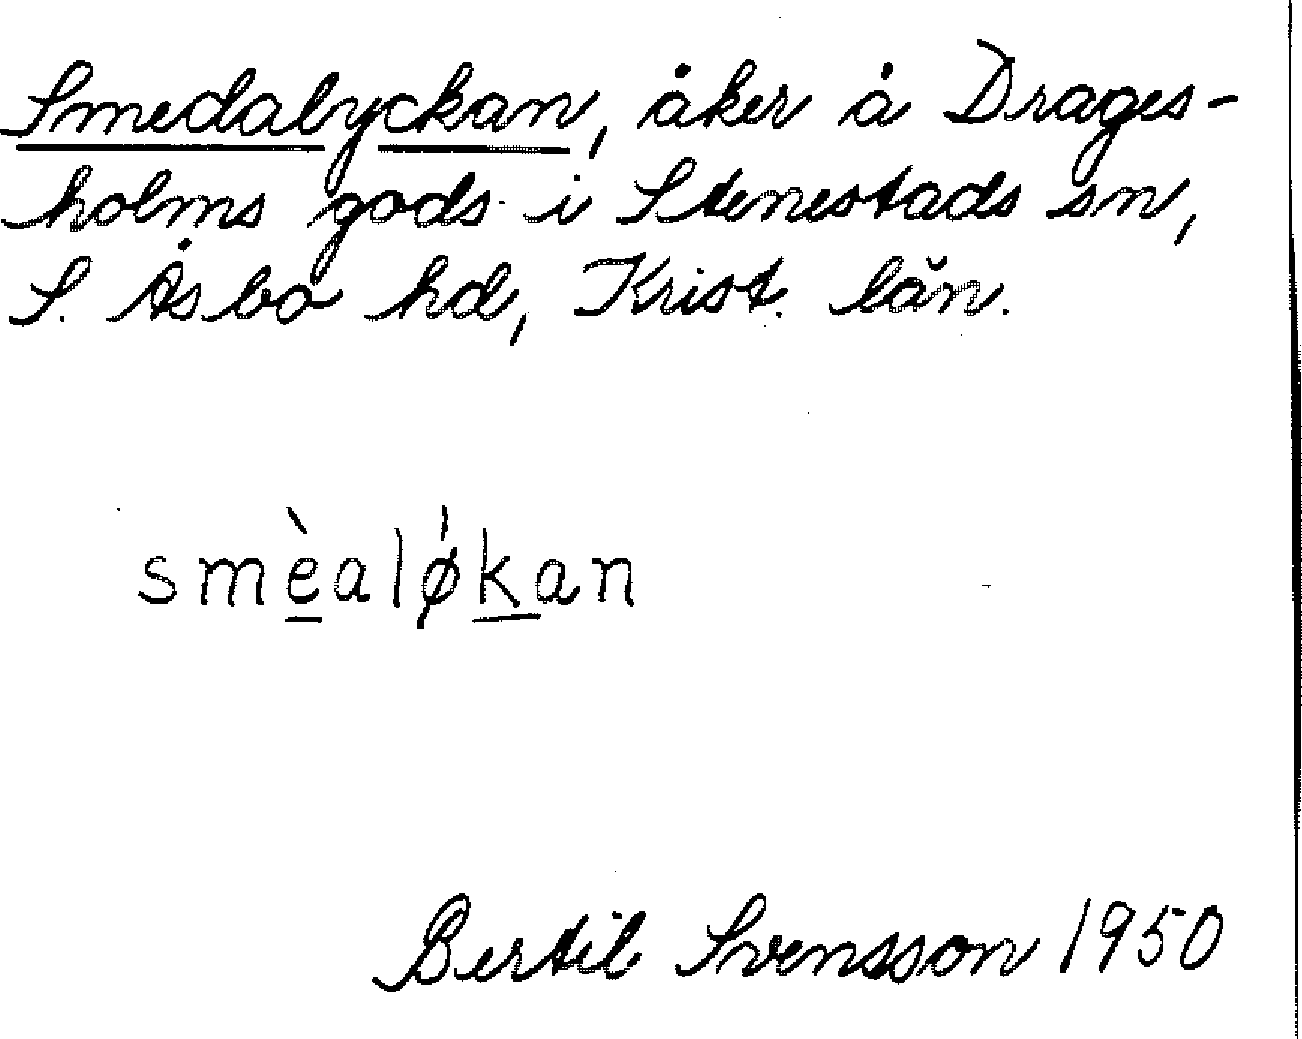 Smedalyckan, åker å Drages-
holms gods i Stenestads sn,
S. Åsbo hd, Krist. län.
smèaløkan
Bertil Svensson 1950